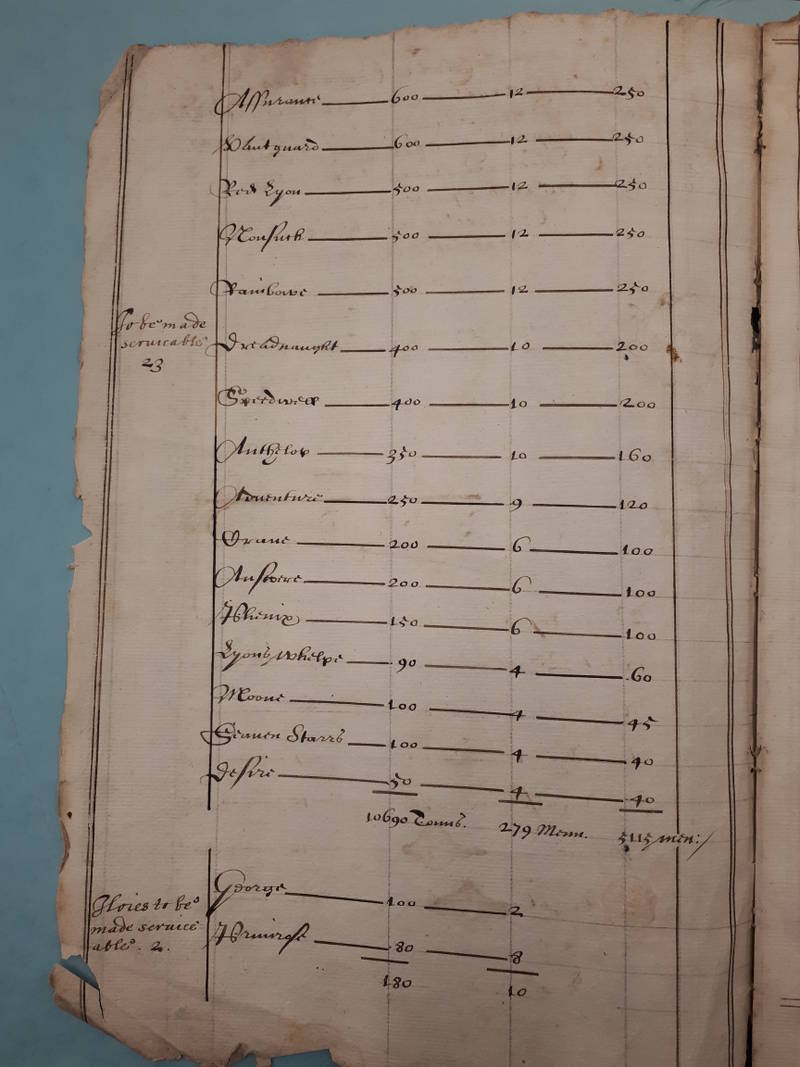 Assurance 600 12 250
Vantguard 600 12 250
Red Lyon 500 12 250
Nonsuch 500 12 250
Rainbowe 500 12 250
To be made
seruicable
23
Dreadnaught 400 10 200
Speedwell 400 10 200
Anthelop 350 10 160
Aduenture 250 9 120
Crane 200 6 100
Answere 200 6 100
Phenix 150 6 100
Lyons Whelpe 90 4 60
Moone 100 4 45
Seauen Starrs 100 4 40
Desire 50 4 40
10690 Tonns. 279 Menn. 5115 men:/
George 100 2
Hoies to be
made service
able. 2.
Primrose 80 8
180 10